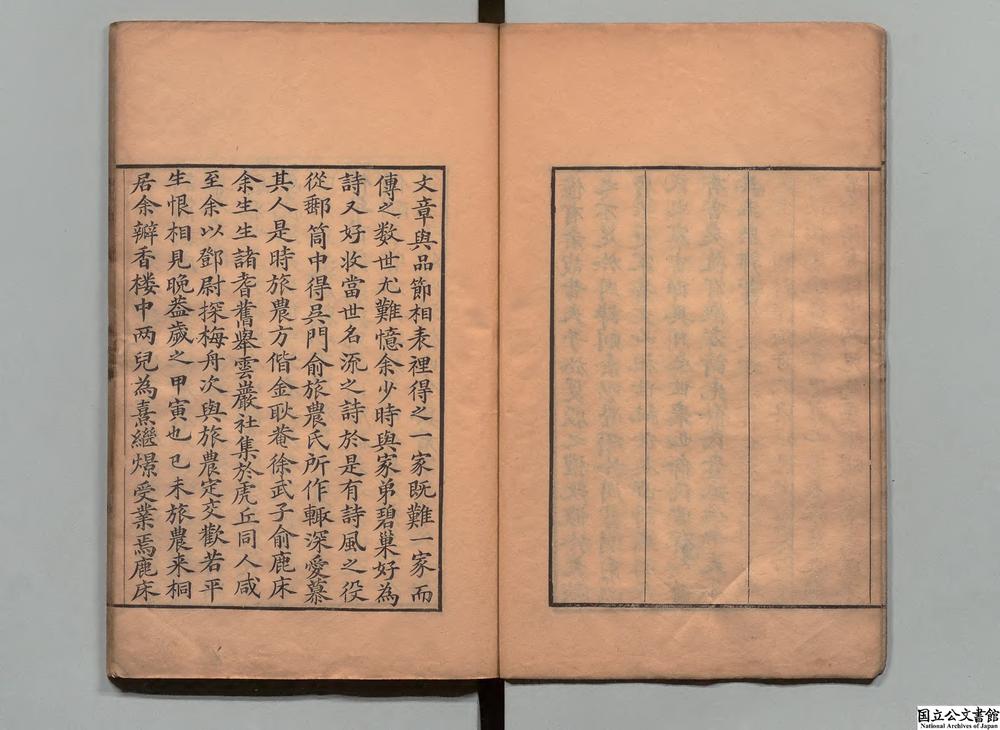 文章與品節相表裡得之一家既難一家而
傳之数世尤難憶余少時與家弟碧巢好為
詩又好收當世名流之詩於是有詩風之役
從郵筒中得吳門俞旅農氏所作輙深愛慕
其人是時旅農方偕金耿菴徐武子俞鹿床
余生生諸耆舊舉雲巖社集於虎丘同人咸
至余以鄧尉探梅舟次與旅農定交歡若平
生恨相見晚葢歲之甲寅也己未旅農来桐
居余辧香楼中两兒為熹繼燝受業焉鹿床
国立公文書館
National Archives of Japan